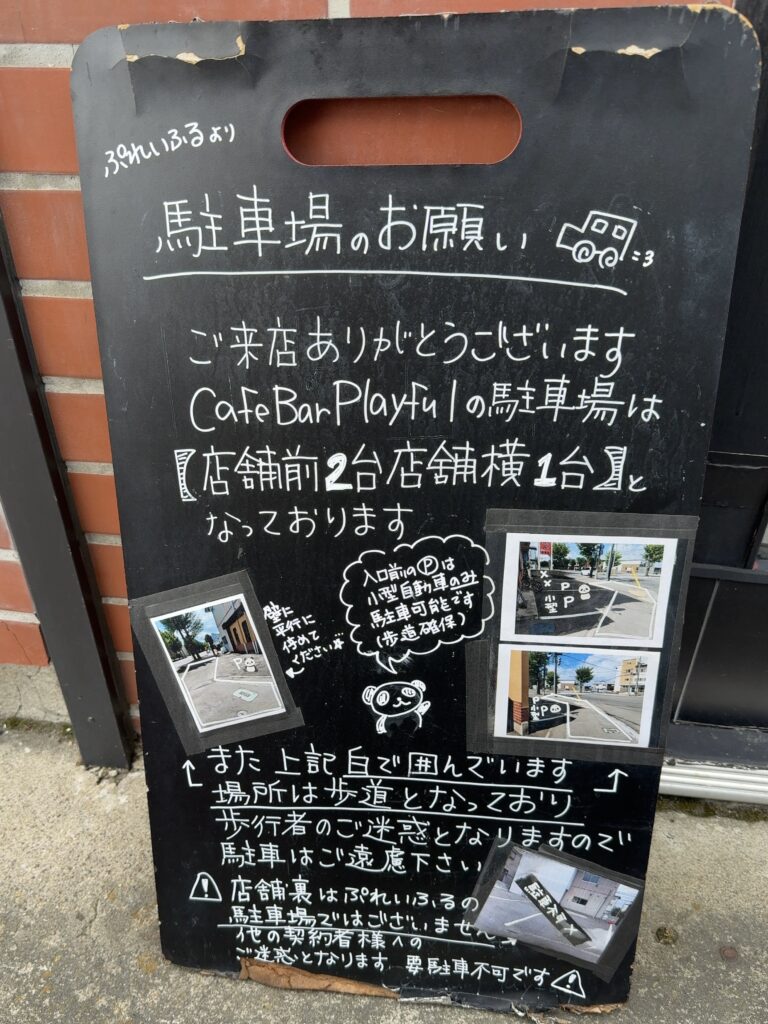 ぷれいふるより
駐車場のお願い
ご来店ありがとうございます
Cafe Bar Playfulの駐車場は
【店舗前2台店舗横1台】と
なっております
入口前のⓅは
小型自動車のみ
駐車可能です
(歩道確保)
壁に
平行に
停めて
ください☆
P
P
小型 P
P
小型 P
また上記白で囲んでいます
場所は歩道となっており
歩行者のご迷惑となりますので
駐車はご遠慮下さい
⚠店舗裏はぷれいふるの
駐車場ではございません→
他の契約者様への
ご迷惑となります 要駐車不可です⚠
駐車不可×